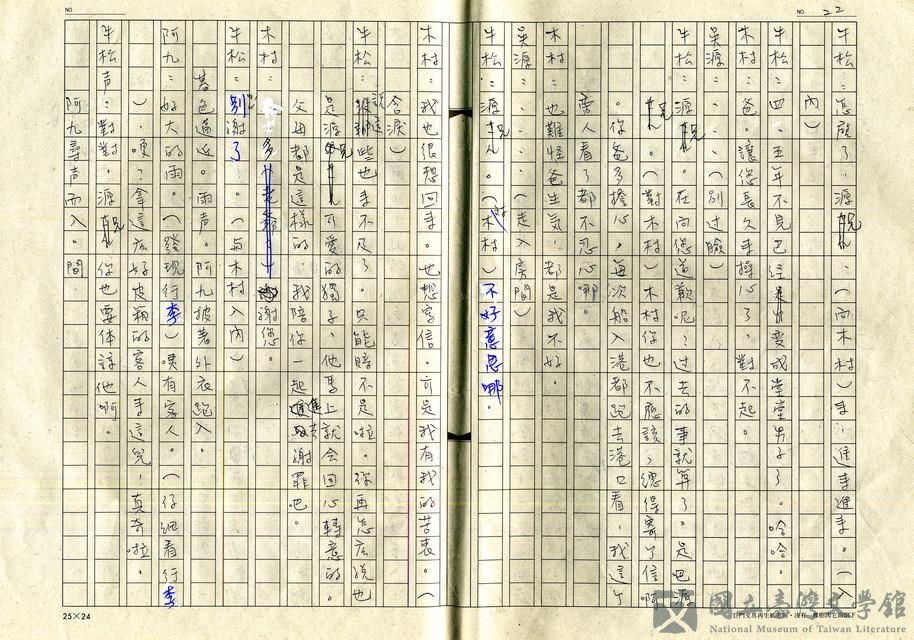 NO. 22
牛松：怎麼了，源兄，（向木村）來，進來進來。（入
內）
牛松：四、五年不見已經變成堂堂男子了。哈哈。
木村：爸，讓您長久來操心了，對不起。
吳源：，（別過臉）
牛松：源兄。在向您道歉呢？過去的事就算了。是吧源
兄。（對木村）木村你也不應該，總得寄個信啊
。你爸多擔心，每次船入港都跑去港口看，我這個
旁人看了都不忍心哪。
木村：也難怪爸生氣，都是我不好。
吳源：。（走入房間）
牛松：源兄。（對木村）不好意思哪。
木村：我也很想回來。也想寫信。可是我有我的苦衷。（
含淚）
牛松：說這些也來不及了。只能賠不是啦。你再怎麼說也
是源兄可愛的獨子，他馬上就會回心轉意的。
父母都是這樣的，我陪你一起進去謝罪吧。
木村：謝謝您。
牛松：別謝了。（與木村入內）
暮色逼近。雨聲。阿九披著外衣跑入。
阿九：好大的雨。（發現行李）咦有客人。（仔細看行李
），噢？拿這麼好皮箱的客人來這兒，真奇啦。
牛松声：對對，源兄。你也要体諒他啊。
阿九尋声而入。間
25×24
國立臺灣文學館
National Museum of Taiwan Literature